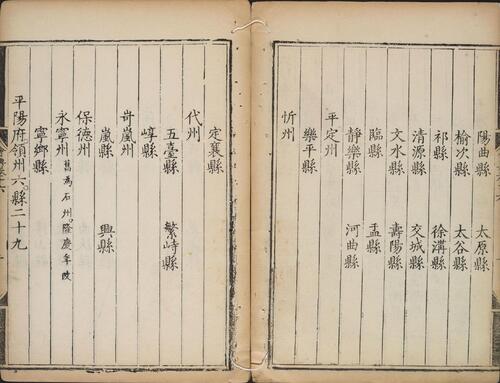 陽曲縣 太原縣
榆次縣 太谷縣
祁縣 徐溝縣
清源縣 交城縣
文水縣 壽陽縣
臨縣 盂縣
靜樂縣 河曲縣
平定州
樂平縣
忻州
定襄縣
代州
五臺縣 繁峙縣
崞縣
岢嵐州
嵐縣 興縣
保德州
永寧州 舊爲石州隆慶年改
寧鄉縣
平陽府領州六縣二十九